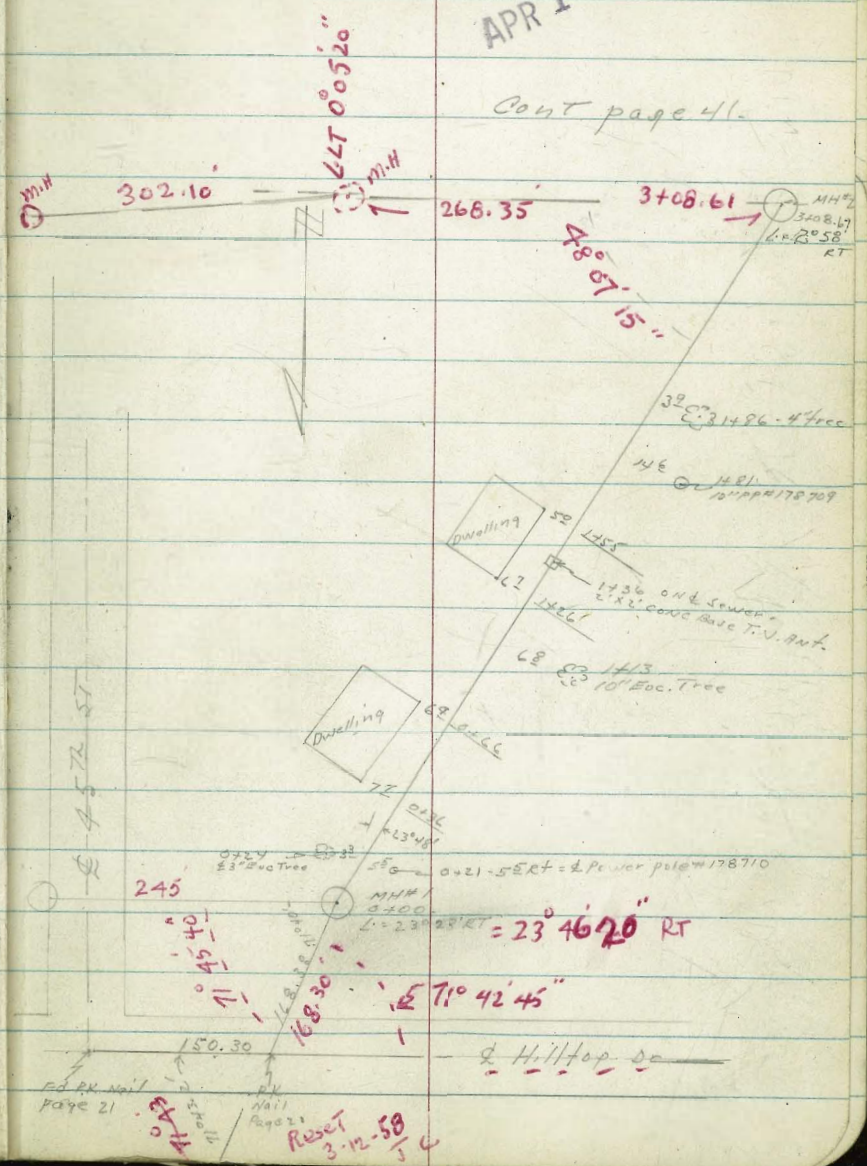 APR 1
Cont page 41.
LLT 0°05'20"
M.H
302.10'
M.H
268.35'
3+08.61
MH#2
3+08.67
RT
48° 07' 15"
3+86 - 4" Tree
14 6
1+81
10" PP# 178709
Dwelling
50
1+55
67
1+36 on ℄ Sewer
2'x2' conc Base T.V. Ant.
1+26
68
1+13
10" Euc. Tree
Dwelling
69
0+66
77
0+36
23°48'
0+24
℄ 3" Euc Tree
33
55
0+21-55 Rt = ℄ Power pole # 178710
℄ 45th St.
245
MH#1
0+00
L = 23°28' RT
= 23° 46' 20" RT
71° 45' 40"
168.38
168.30'
71° 42' 45"
150.30
℄ Hilltop Dr
Fd P.K Nail
Page 21
71°43'
P.K
Nail
Page 21
Reset
3-12-58